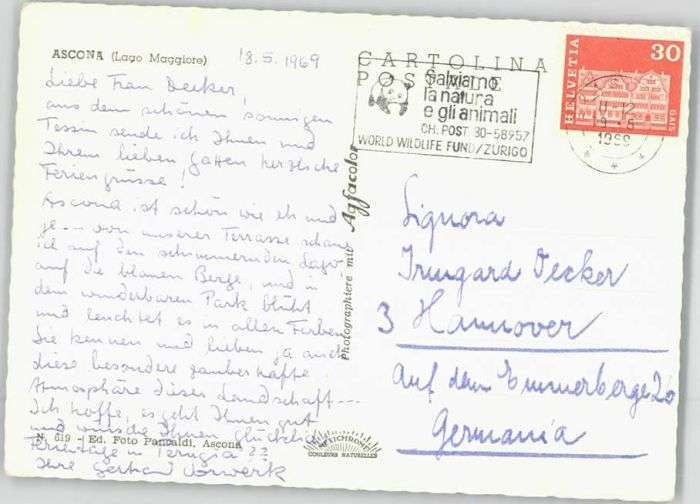 ASCONA (Lago Maggiore)
18.5.1969
Liebe Frau Decker,
aus dem schönen sonnigen
Tessin sende ich Ihnen und
Ihrem lieben Gatten herzliche
Feriengrüsse!
Ascona ist schön wie eh und
je -- von unserer Terrasse schau
ich auf den schimmernden Lago
auf die blauen Berge, und in
dem wunderbaren Park blüht
und leuchtet es in allen Farben
Sie kennen und lieben ja auch
diese besondere zauberhafte
Atmosphäre dieser Landschaft ---
Ich hoffe, es geht Ihnen gut
und wünsche Ihnen glückliche
N. 619 - Ed. Foto Pancaldi, Ascona
Ferientage in Perugia ??
Ihre Gerhard Vorwerk
Photographiere mit Agfacolor
MEXICHROME
COULEURS NATURELLES
CARTOLINA
POSTALE
Salviamo
la natura
e gli animali
CH. POST 30-58957
WORLD WILDLIFE FUND/ZURIGO
HELVETIA
30
GAIS
Signora
Irmgard Decker
3 Hannover
Auf dem Emmerberge 20
Germania